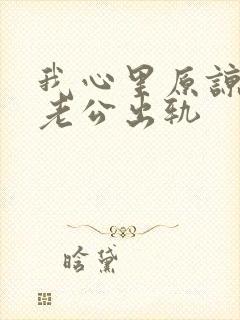 我心里原谅
老公出轨
晗黛